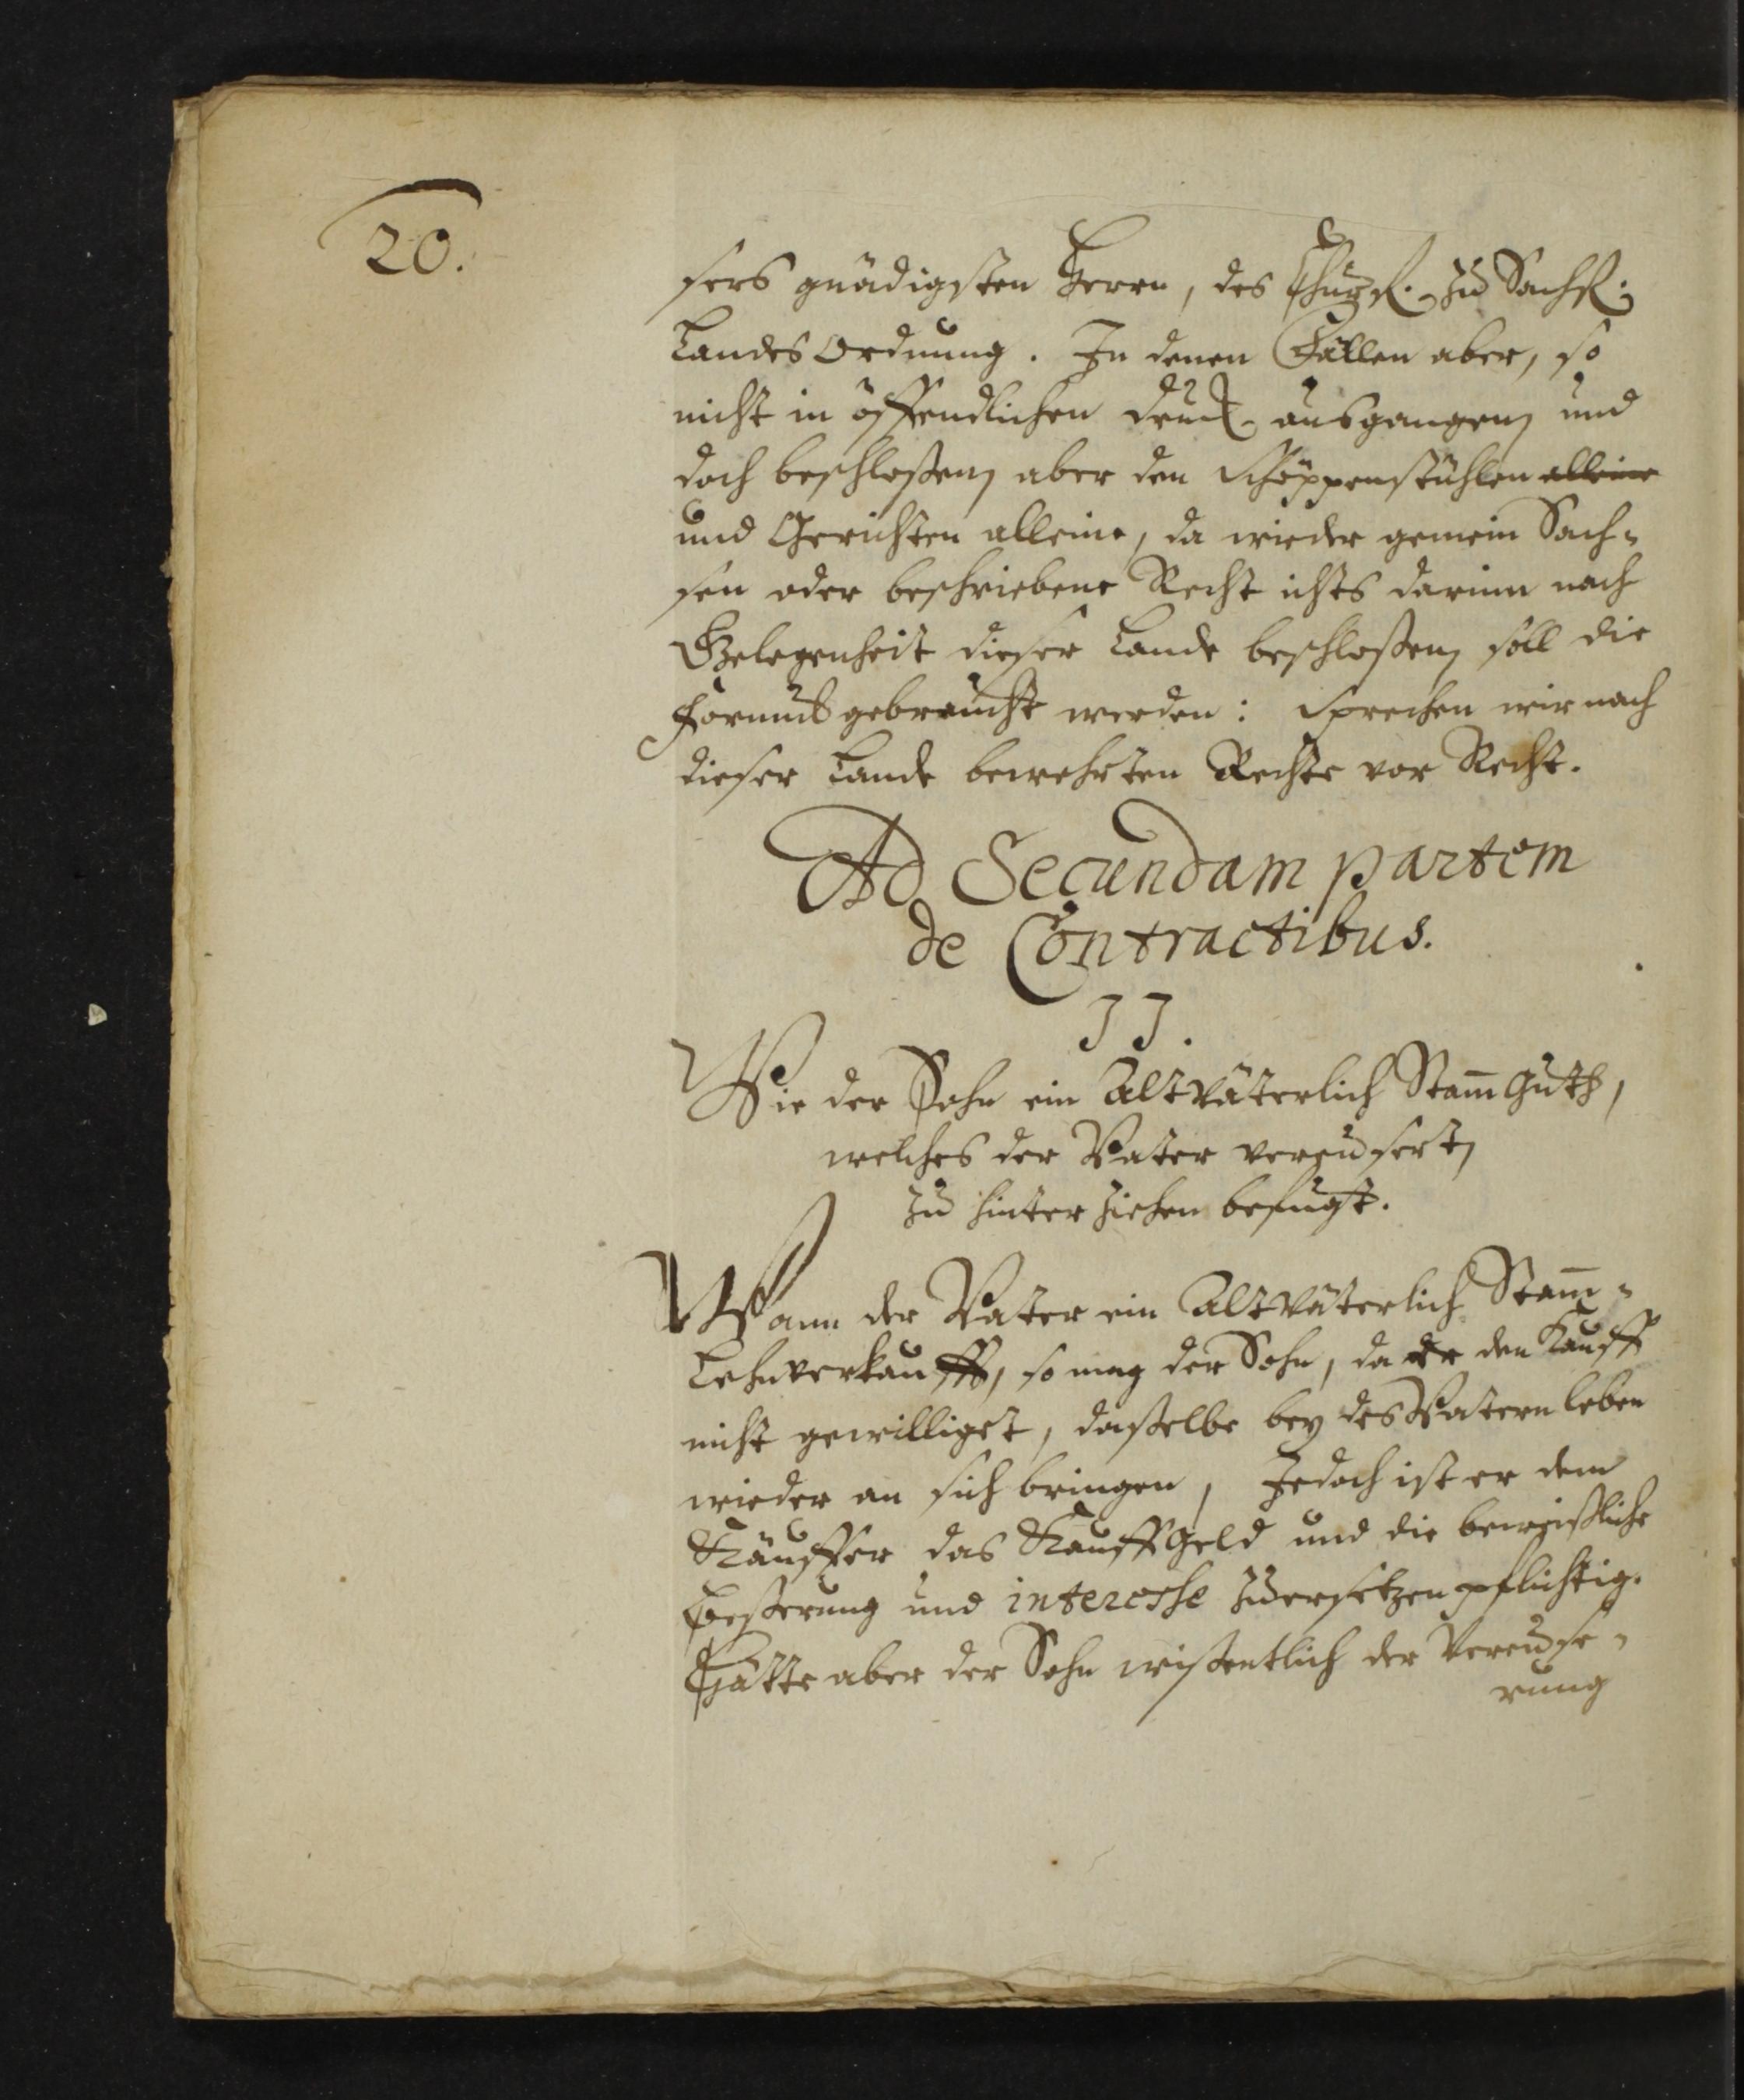 20.
sers gnädigsten Herrn, des Churf. zu Sachß.
Landes Ordnung. In denen Fällen aber, so
nicht in öffendlichen Druck ausgangen, und
doch beschloßen, aber den Schöppenstühlen alleine
und Gerichten alleine, da wieder gemein Sach-
sen oder beschriebene Recht ichts darinn nach
Gelegenheit dieser Lande beschloßen, soll die
Formul gebraucht werden: Sprechen wir nach
dieser Lande bewehrten Rechte vor Recht.
Ad Secundam partem
de Contractibus.
11.
Wie der Sohn ein Altväterlich Stam̄Guth,
welches der Vater vereusert,
zu hinter ziehen befugt.
Wann der Vater ein Altväterlich Stam̄-
Lehn verkaufft, so mag der Sohn, da er den Kauff
nicht gewilliget, daßelbe bey des Vatern leben
wieder an sich bringen, Jedoch ist er dem
Käuffer das Kauffgeld und die beweißliche
Beßerung und interesse zu ersetzen pflichtig.
Hätte aber der Sohn wißentlich der Vereuse-
rung